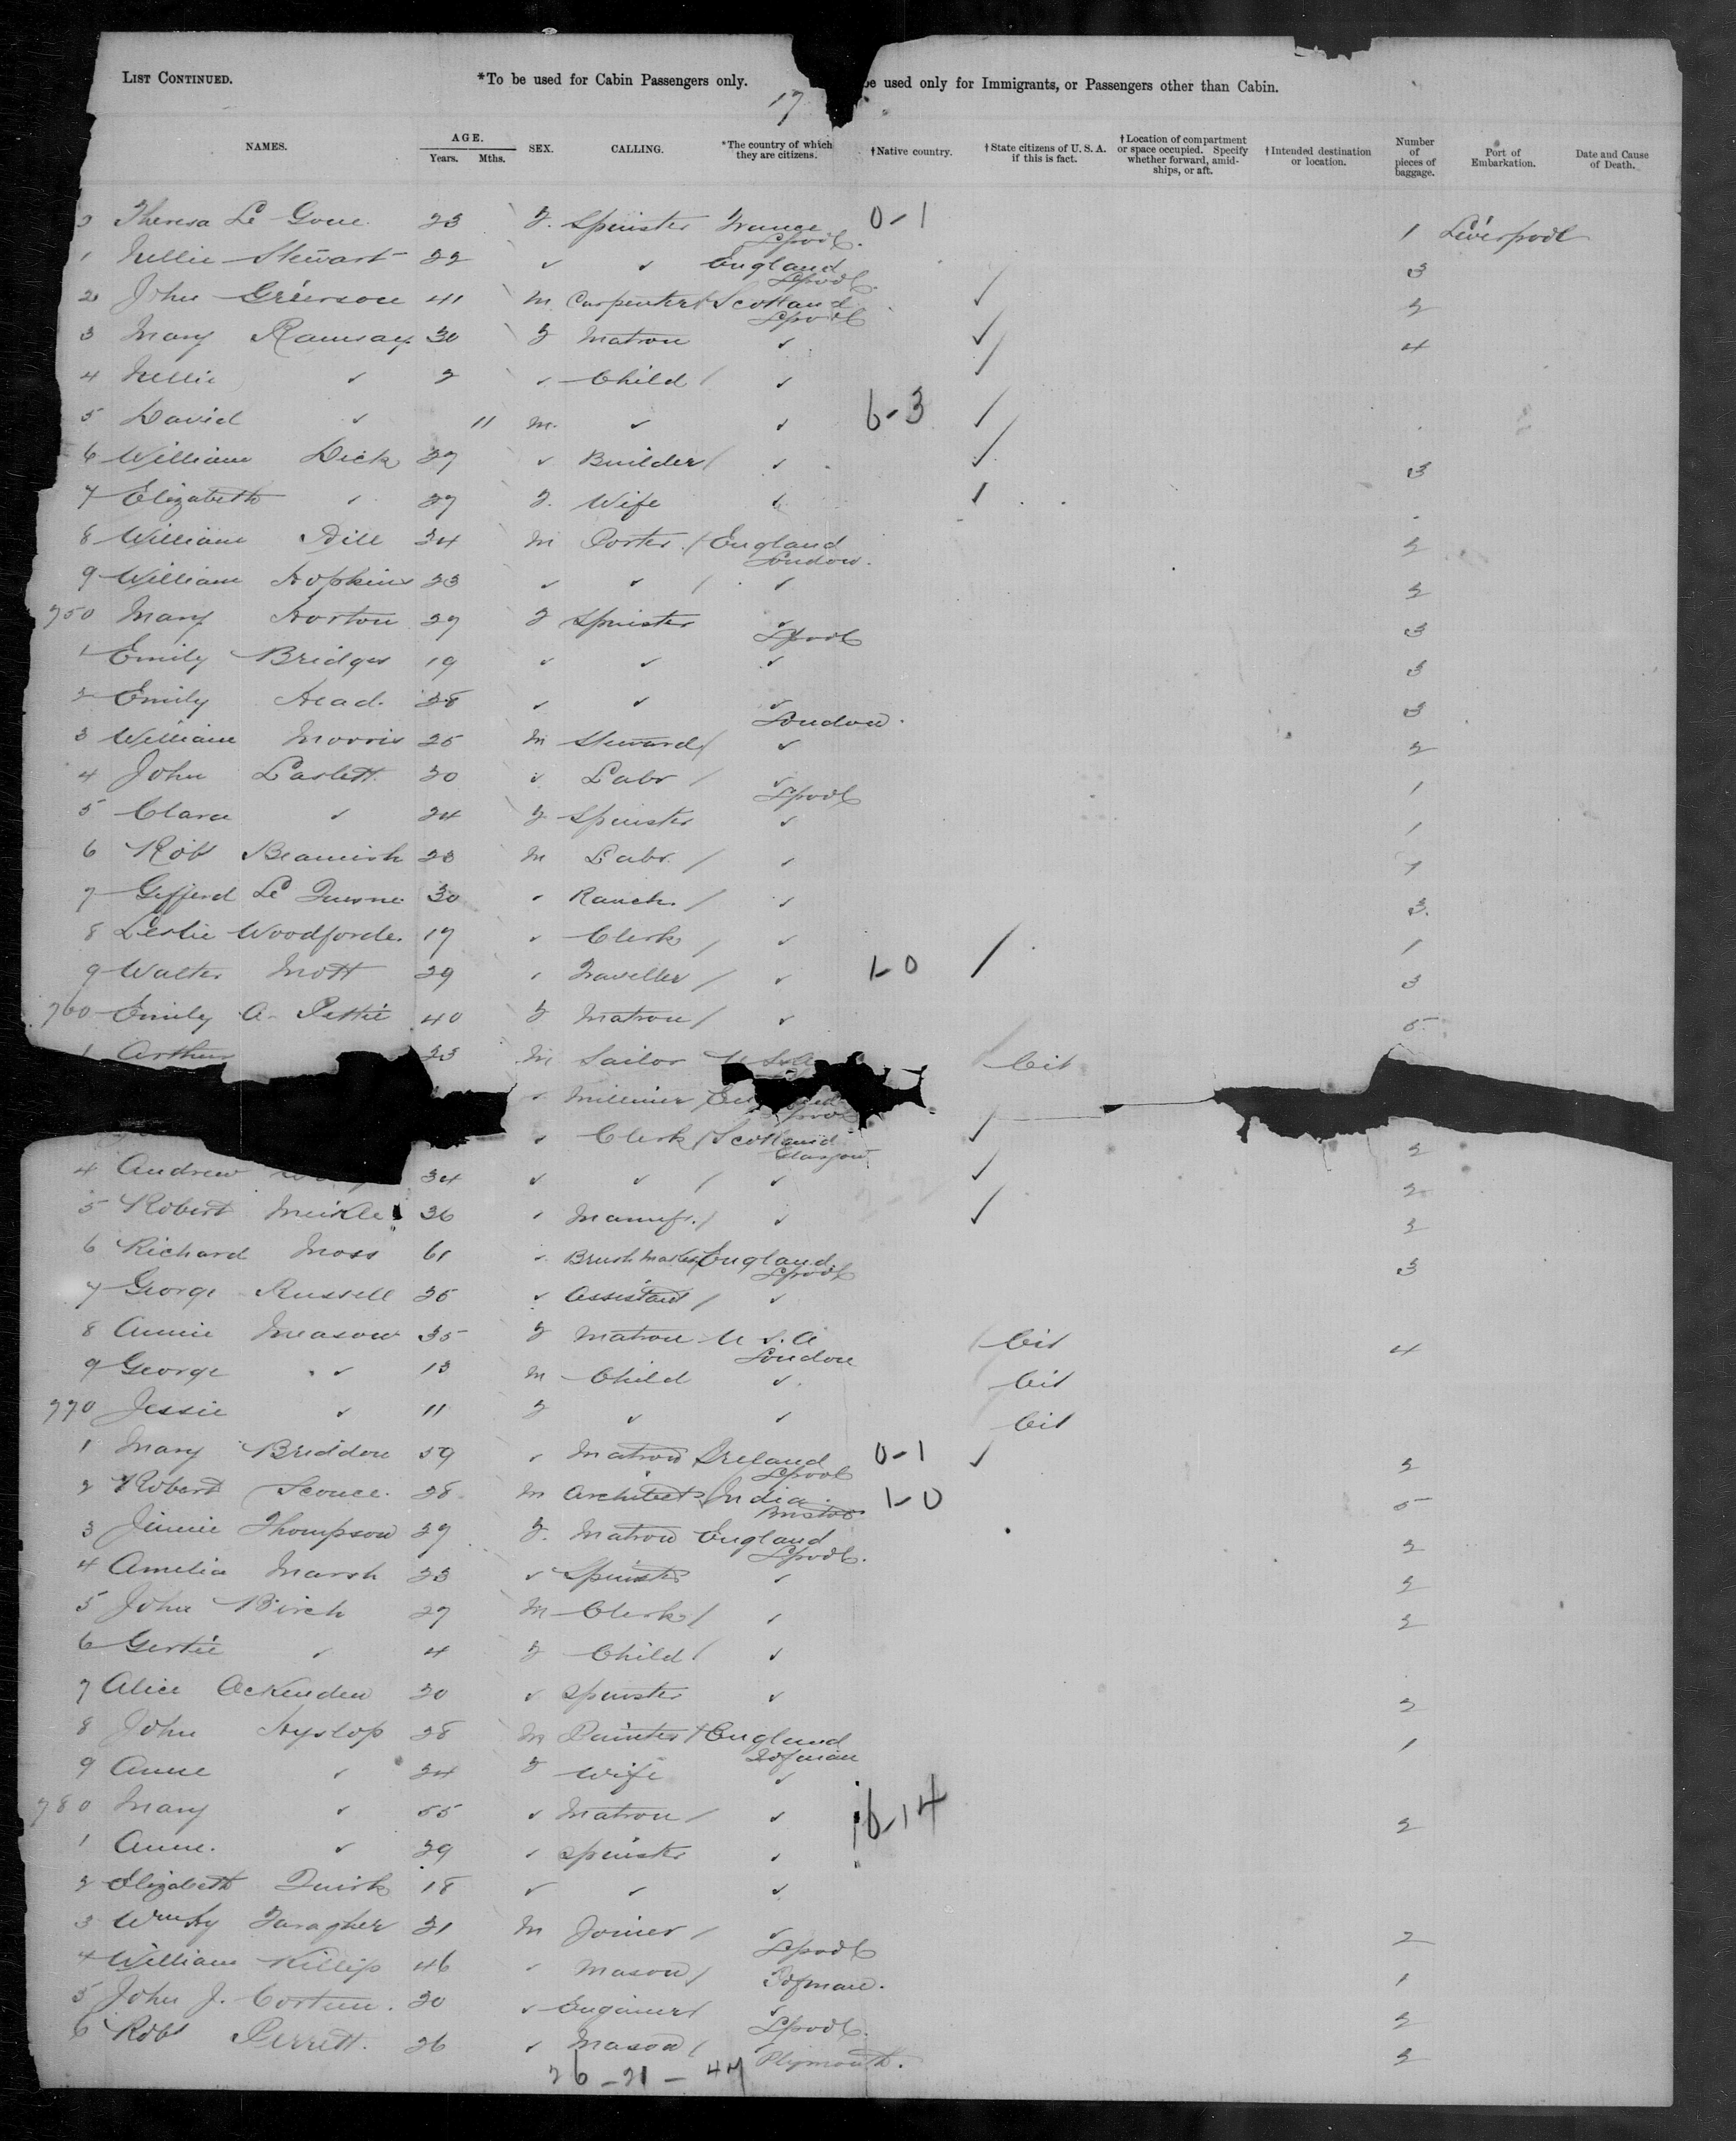 LIST CONTINUED. *To be used for Cabin Passengers only. be used only for Immigrants, or Passengers other than Cabin.
17
NAMES. AGE. Years. Mths. SEX. CALLING. *The country of which they are citizens. †Native country. †State citizens of U. S. A. if this is fact. †Location of compartment or space occupied. Specify whether forward, amidships, or aft. †Intended destination or location. Number of pieces of baggage. Port of Embarkation. Date and Cause of Death.
Theresa Le 23 F. Spinster France 0-1 1 Liverpool
Lpool.
1 Nellie Stewart 22 ✓ ✓ England 3
Lpool.
2 John Grierson 41 M Carpenter / Scotland ✓ 2
Lpool
3 Mary Ramsay 30 F Matron ✓ ✓ 4
4 Nellie ✓ 2 ✓ Child / ✓ /
5 David ✓ 11 M. ✓ ✓ 6-3 /
6 William Dick 27 ✓ Builder / ✓ ✓ 3
7 Elizabeth ✓ 27 F. Wife ✓ /
8 William 24 M Porter / England 2
London.
9 William Hopkins 23 ✓ ✓ / ✓ 2
750 Mary Horton 27 F Spinster ✓ 3
Lpool
1 Emily Bridges 19 ✓ ✓ ✓ 3
2 Emily Head. 28 ✓ ✓ ✓ 3
London.
3 William Morris 25 M Steward / ✓ 2
4 John Laslett 30 ✓ Labr / ✓ 1
Lpool
5 Clara ✓ 24 F Spinster ✓ 1
6 Robt Beamish 23 M Labr. / ✓
7 Gifferd Le 30 ✓ Ranch. / ✓ 3.
8 Leslie Woodforde. 17 ✓ Clerk / ✓ / 1
9 Walter Mott 29 ✓ Traveller / ✓ 1-0 3
760 Emily A. Pettie 40 F Matron / ✓ 5
1 Arthur 23 M Sailor U.S.A Cit
✓ Milliner /
Lpool
✓ Clerk / Scotland ✓ 2
Glasgow
4 Andrew 34 ✓ ✓ / ✓ ✓ 2
5 Robert Meikle 36 ✓ Manufr. / ✓ ✓ 2
6 Richard Moss 61 ✓ Brush Maker / England 3
Lpool
7 George Russell 25 ✓ Assistant / ✓
8 Annie Measow 35 F Matron U.S.A Cit 4
London
9 George ✓ 13 M Child ✓ Cit
770 Jessie ✓ 11 F ✓ ✓ Cit
1 Mary Briddon 59 ✓ Matron Ireland 0-1 ✓ 2
Lpool
2 Robert Scouce. 28 M Architect / India. 1-0 5
Bristol
3 Jinnie Thompson 27 F. Matron England 2
Lpool.
4 Amelia Marsh 23 ✓ Spinster ✓ 2
5 John Birch 27 M Clerk / ✓ 2
6 Gertie ✓ 4 F Child / ✓
7 Alice Ackenden 20 ✓ Spinster ✓ 2
8 John Hyslop 28 M Painter / England 1
I of man
9 Anne ✓ 24 F Wife ✓
780 Mary ✓ 55 ✓ Matron / ✓ 16-14 2
1 Anne. ✓ 29 ✓ Spinster ✓
2 Elizabeth Quirk 18 ✓ ✓ ✓
3 Faragher 21 M Joiner / ✓ 2
Lpool
4 William Killip 46 ✓ Mason / I of man. 1
5 John J. 30 ✓ Engineer / ✓ 2
Lpool.
6 Robt Perrett. 26 ✓ Mason / Plymouth. 2
26-21-47